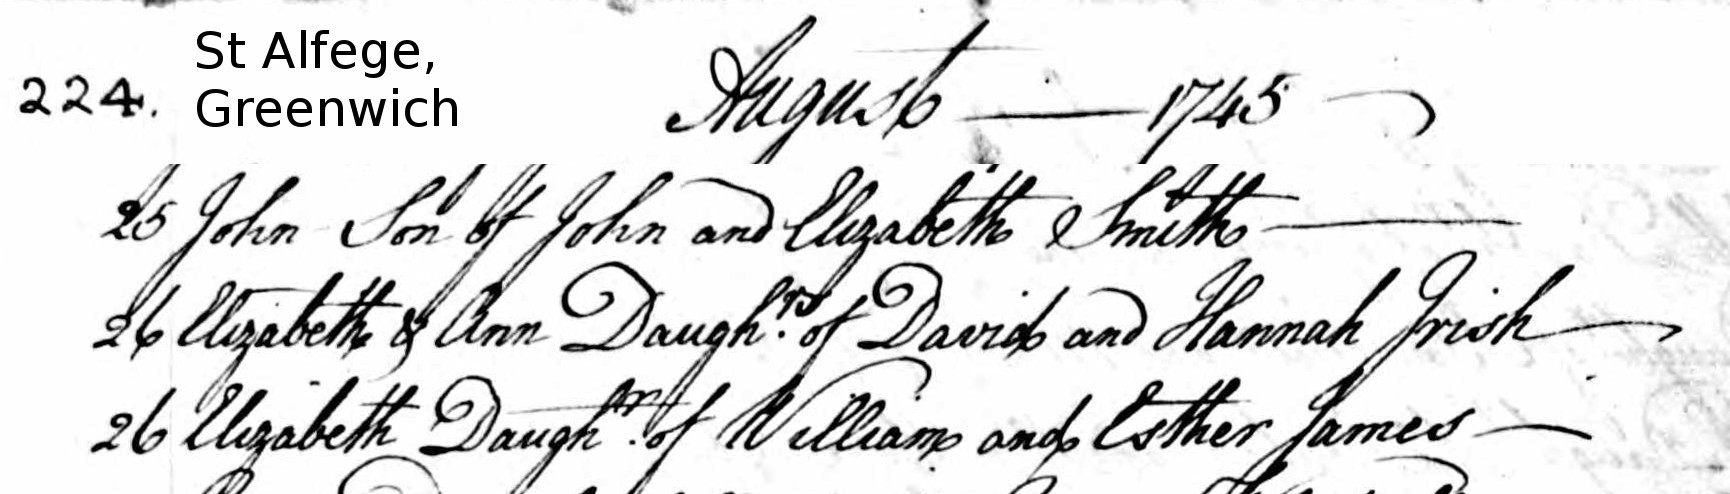 224.
St Alfege,
Greenwich
August — 1745
25 John Son of John and Elizabeth Smith —
26 Elizabeth & Ann Daughrs. of David and Hannah Irish
26 Elizabeth Daughr. of William and Esther James —